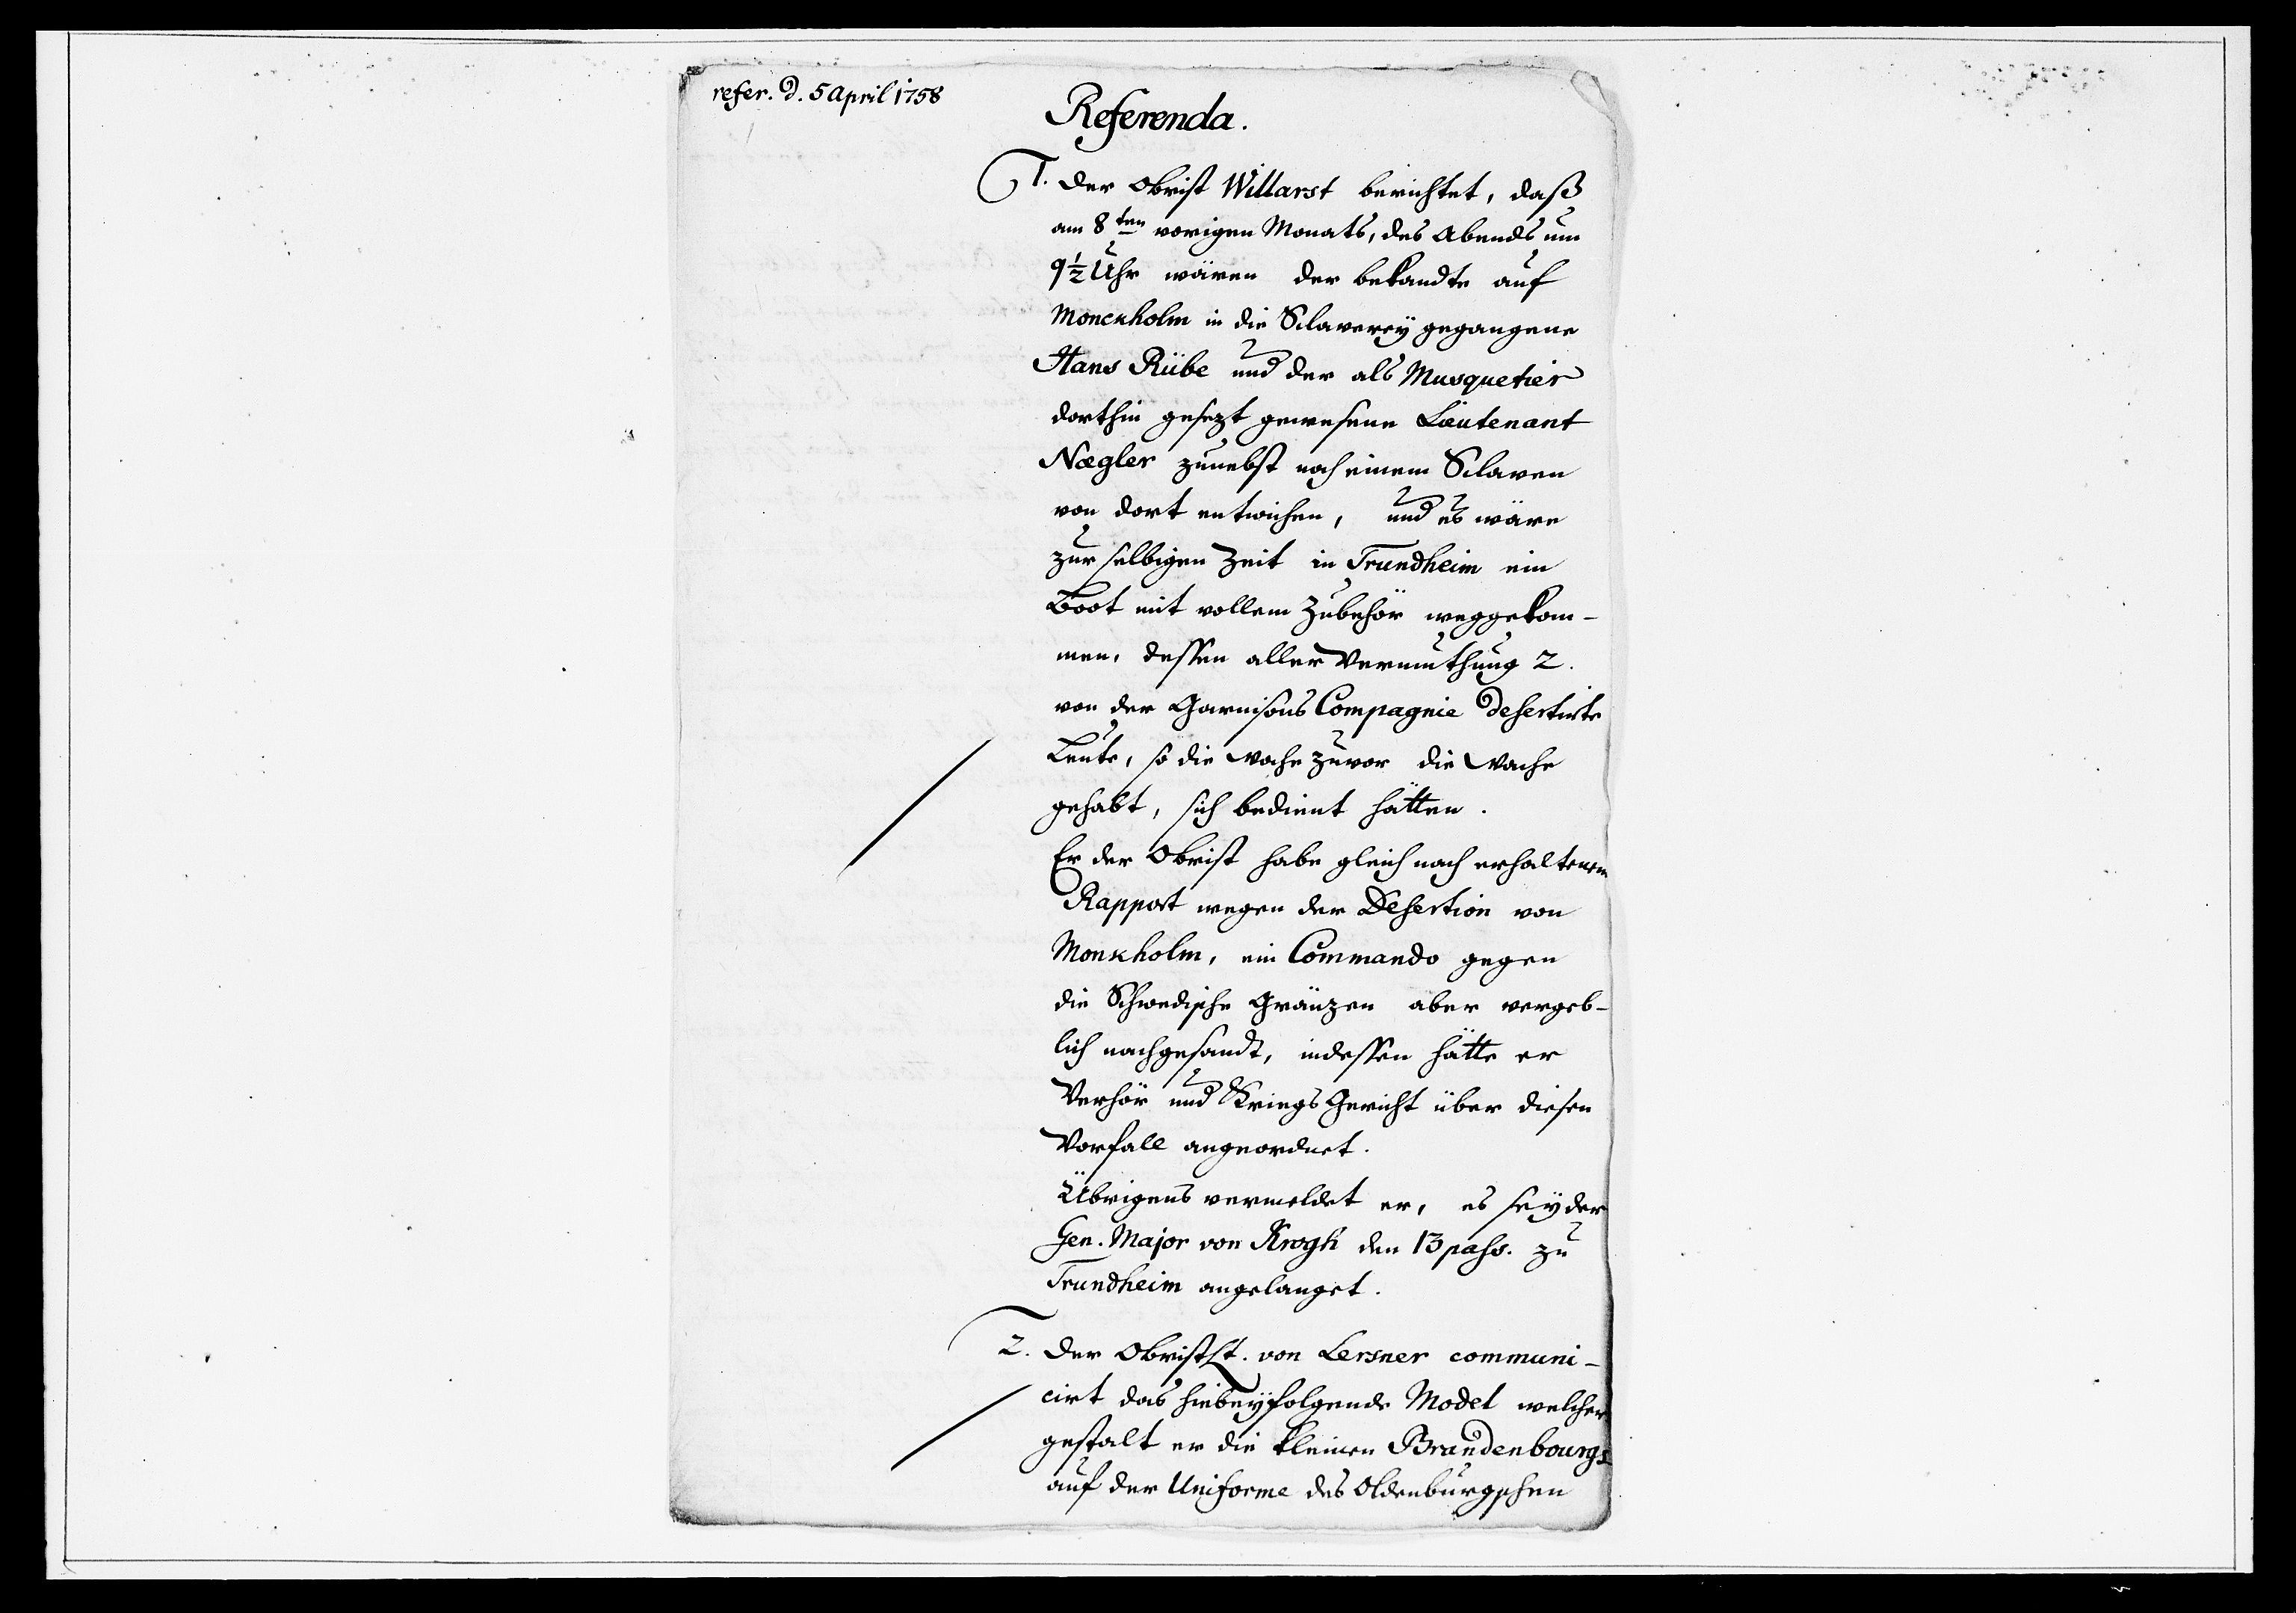 refer. d. 5 April 1758
Referenda.
1. Der Obrist Willarst berichtet, daß
am 8ten vorigen Monats, des Abends um
9½ Uhr wären der bekandte auf
Monckholm in die Sclaverey gegangene
Hans Rübe und der als Musquetier
dorthin gesezt gewesene Lieutenant
Nægler zunebst noch einem Sclaven
von dort entwichen, und es wäre
zur selbigen Zeit in Trundheim ein
Boot mit vollem Zubehör weggekom-
men, dessen aller Vermuthung 2.
von der Garnisons Compagnie desertirte
Leute, so die Woche zuvor die Wache
gehabt, sich bedient hätten.
Er der Obrist habe gleich nach erhaltenem
Rapport wegen der Desertion von
Monkholm, ein Commando gegen
die Schwedische Gränzen aber vergeb-
lich nachgesandt, indessen hätte er
Verhör und Kriegs Gericht über diesen
Vorfall angeordnet.
Übrigens vermeldet er, es sey der
Gen. Major von Krogh den 13 pass. zu
Trundheim angelanget.
2. Der Obristlt. von Lersner communi-
cirt das hiebeyfolgende Model welcher
gestalt er die kleinen Brandenbourgs
auf der Uniforme des Oldenburgschen